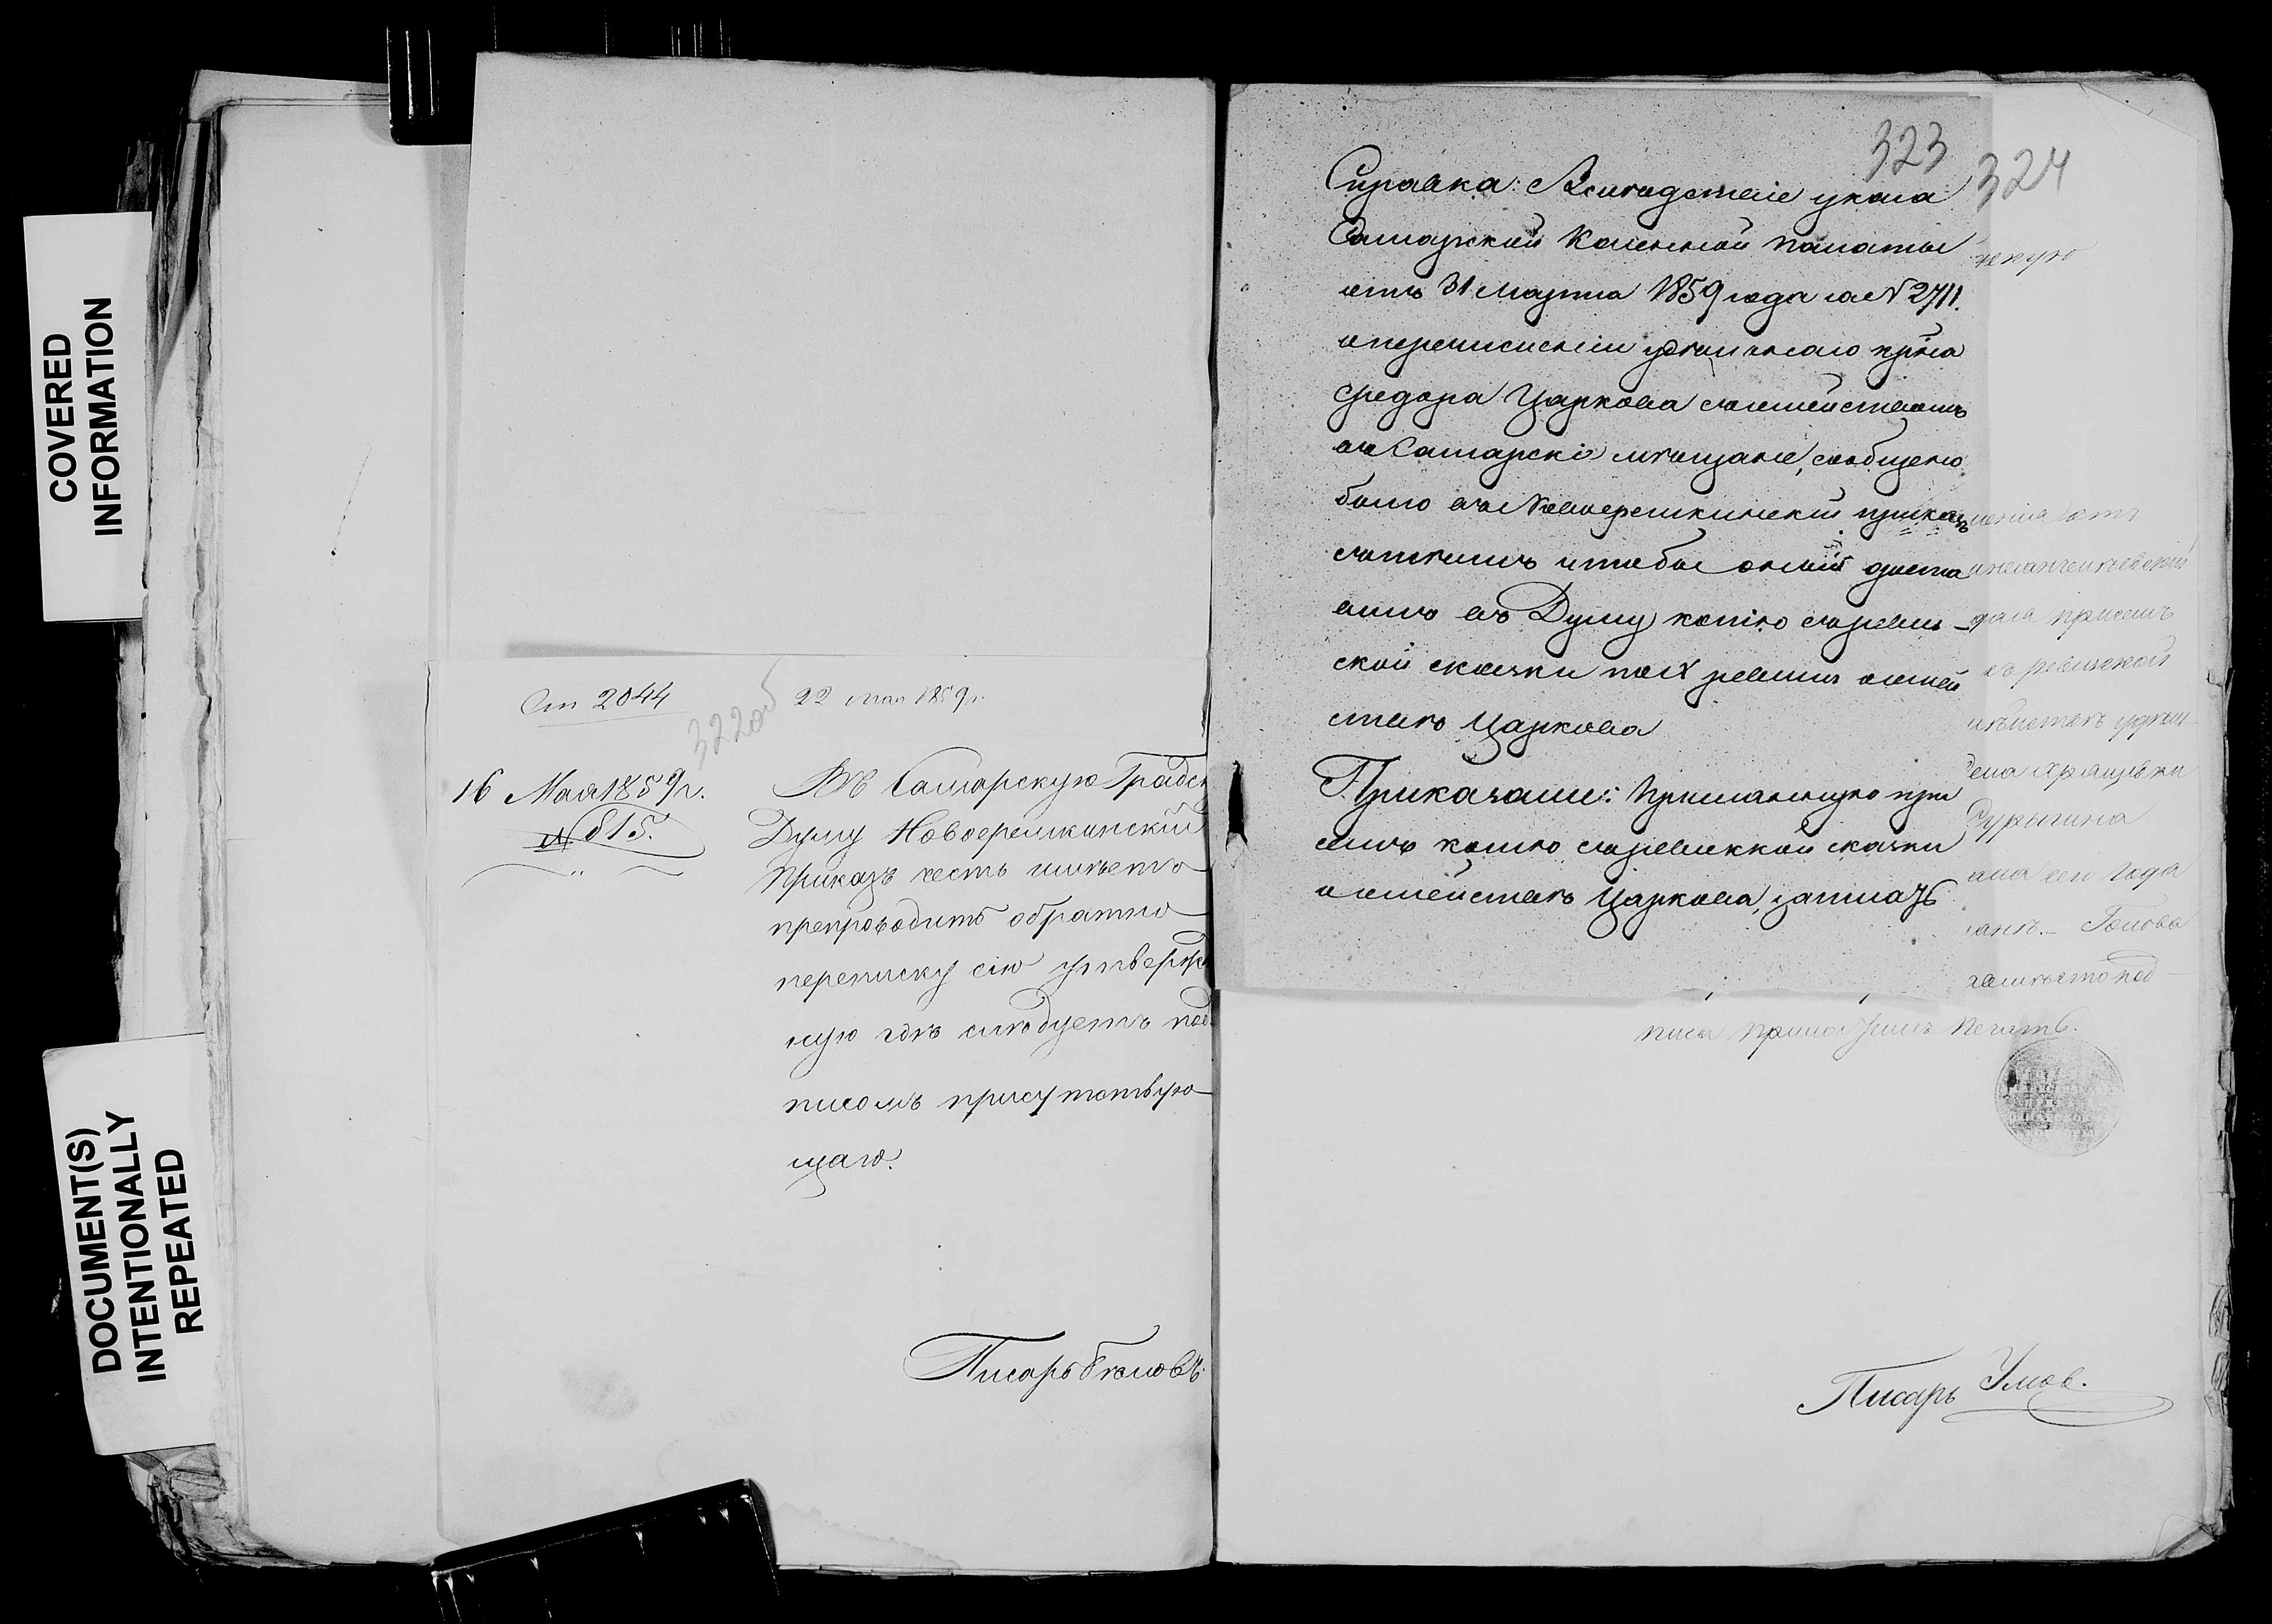 COVERED
INFORMATION
DOCUMENT(S)
INTENTIONALLY
REPEATED
Ст 2044
22 мая 1859 г.
322 об
16 Мая 1859 г.
№ 815.
Въ Самарскую Градск
Думу Новоеремкинскій
Приказъ честь имѣетъ
препроводить обратно
переписку сію утвержд
ную гдѣ слѣдуетъ под
писомъ присутствую
щаго.
Писарь Бѣловъ
323
324
Справка: Вслѣдствіе указа
Самарской Казенной палаты
отъ 31 Марта 1859 года за № 2711.
о перечисленіи удѣльнаго крнa
Федора Царкова съ семействомъ
въ Самарскіе мѣщане, сообщено
было въ Новоеремкинскій приказъ
съ тѣмъ чтобы оный доста
вилъ въ Думу копію съ ревиз
ской сказки по X ревизіи о семей
ствѣ Царкова
Приказали: присланную при
семъ копію съ ревизской сказки
о семействѣ Царкова,
скую
ленія отъ
дала при семъ
въ ревизской
удѣль
Хрящевки
Сурыгина
сего года
Попова
вмѣсто под
писи приложилъ печать.
Писарь Умов.